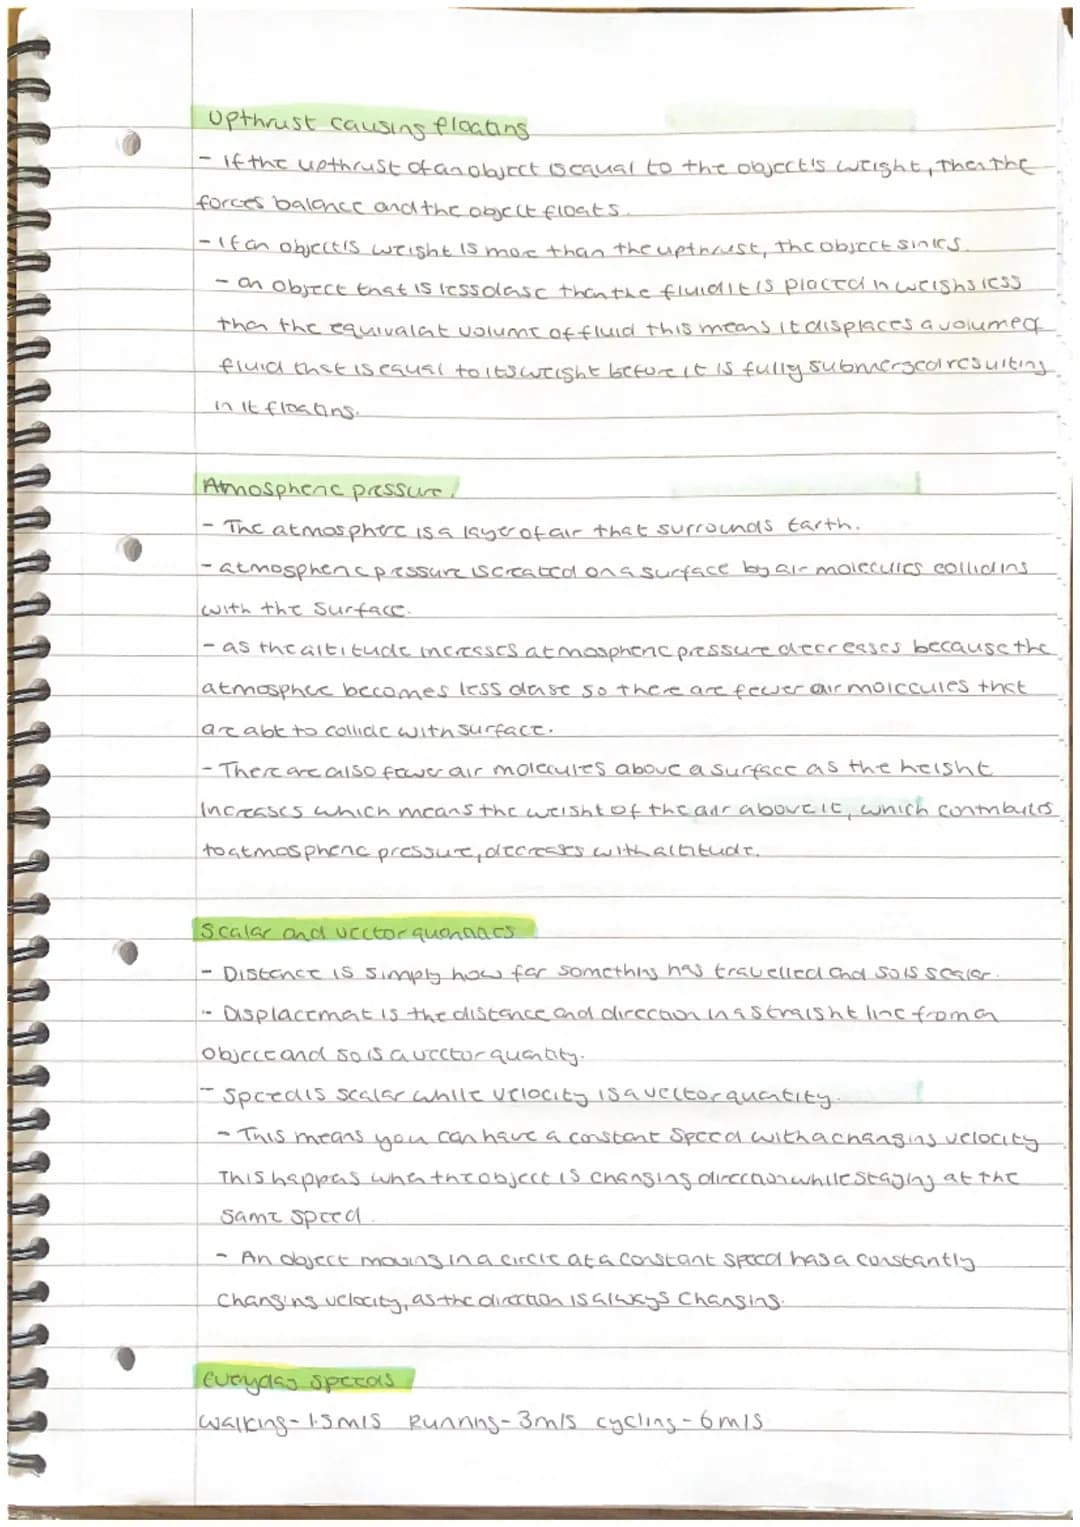 Upthrust causing floating
- If the upthrust of an object is equal to the object's weight, then the
forces balance and the object floats.
- If an object's weight is more than the upthrust, the object sinks.
- an object that is less dense than the fluid it is placed in weighs less
than the equivalent volume of fluid this means it displaces a volume of
fluid that is equal to its weight before it is fully submerged resulting
in it floating.
Atmospheric pressure.
- The atmosphere is a layer of air that surrounds Earth.
- atmospheric pressure is created on a surface by air molecules colliding
with the surface.
- as the altitude increases atmospheric pressure decreases because the
atmosphere becomes less dense so there are fewer air molecules that
are able to collide with surface.
- There are also fewer air molecules above a surface as the height
increases which means the weight of the air above it, which contributes
to atmospheric pressure, decreases with altitude.
Scalar and vector quantities
- Distance is simply how far something has travelled and so is scalar.
- Displacement is the distance and direction in a straight line from an
object and so is a vector quantity.
- Speed is scalar while velocity is a vector quantity.
- This means you can have a constant speed with a changing velocity
This happens when the object is changing direction while staying at the
same speed.
- An object moving in a circle at a constant speed has a constantly
changing velocity, as the direction is always changing.
Everyday speeds
walking - 1.5m/s Running - 3m/s cycling - 6m/s